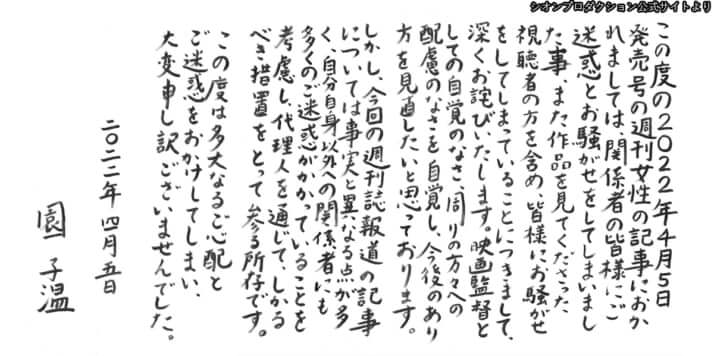 シオンプロダクション公式サイトより
この度の2022年4月5日
発売号の週刊女性の記事におか
れましては、関係者の皆様にご
迷惑とお騒がせをしてしまいまし
た事、また作品を見てくださった、
視聴者の方を含め、皆様にお騒がせ
をしてしまっていることにつきまして、
深くお詫びいたします。映画監督と
しての自覚のなさ、周りの方々への
配慮のなさを自覚し、今後のあり
方を見直したいと思っております。
しかし、今回の週刊誌報道の記事
については事実と異なる点が多
く、自分自身以外への関係者にも
多くのご迷惑がかかっていることを
考慮し、代理人を通じて、しかる
べき措置をとって参る所存です。
この度は多大なるご心配と
ご迷惑をおかけしてしまい、
大変申し訳ございませんでした。
二〇二二年四月五日
園子温